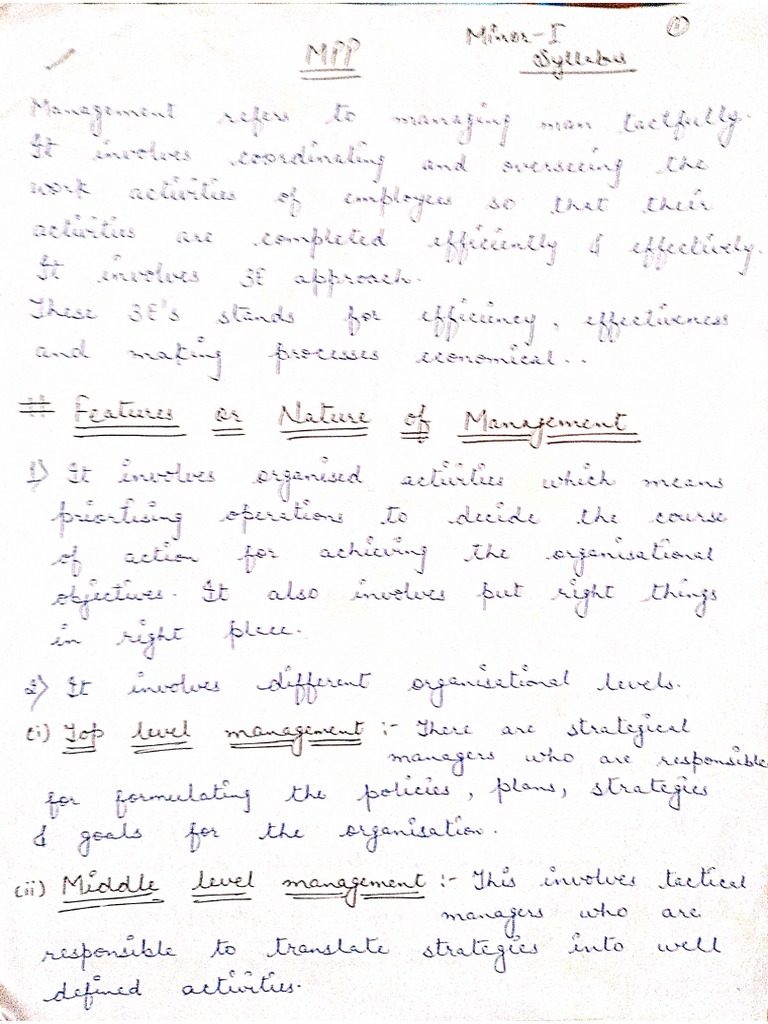 Minor-I (1)
MPP Syllabus
Management refers to managing man tactfully.
It involves coordinating and overseeing the
work activities of employees so that their
activities are completed efficiently & effectively.
It involves 3E approach.
These 3E's stands for efficiency, effectiveness
and making processes economical..
# Features or Nature of Management
1) It involves organised activities which means
priortising operations to decide the course
of action for achieving the organisational
objectives. It also involves put right things
in right place.
2) It involves different organisational levels.
(i) Top level management :- There are strategical
managers who are responsible
for formulating the policies, plans, strategies
& goals for the organisation.
(ii) Middle level management :- This involves tactical
managers who are
responsible to translate strategies into well
defined activities.